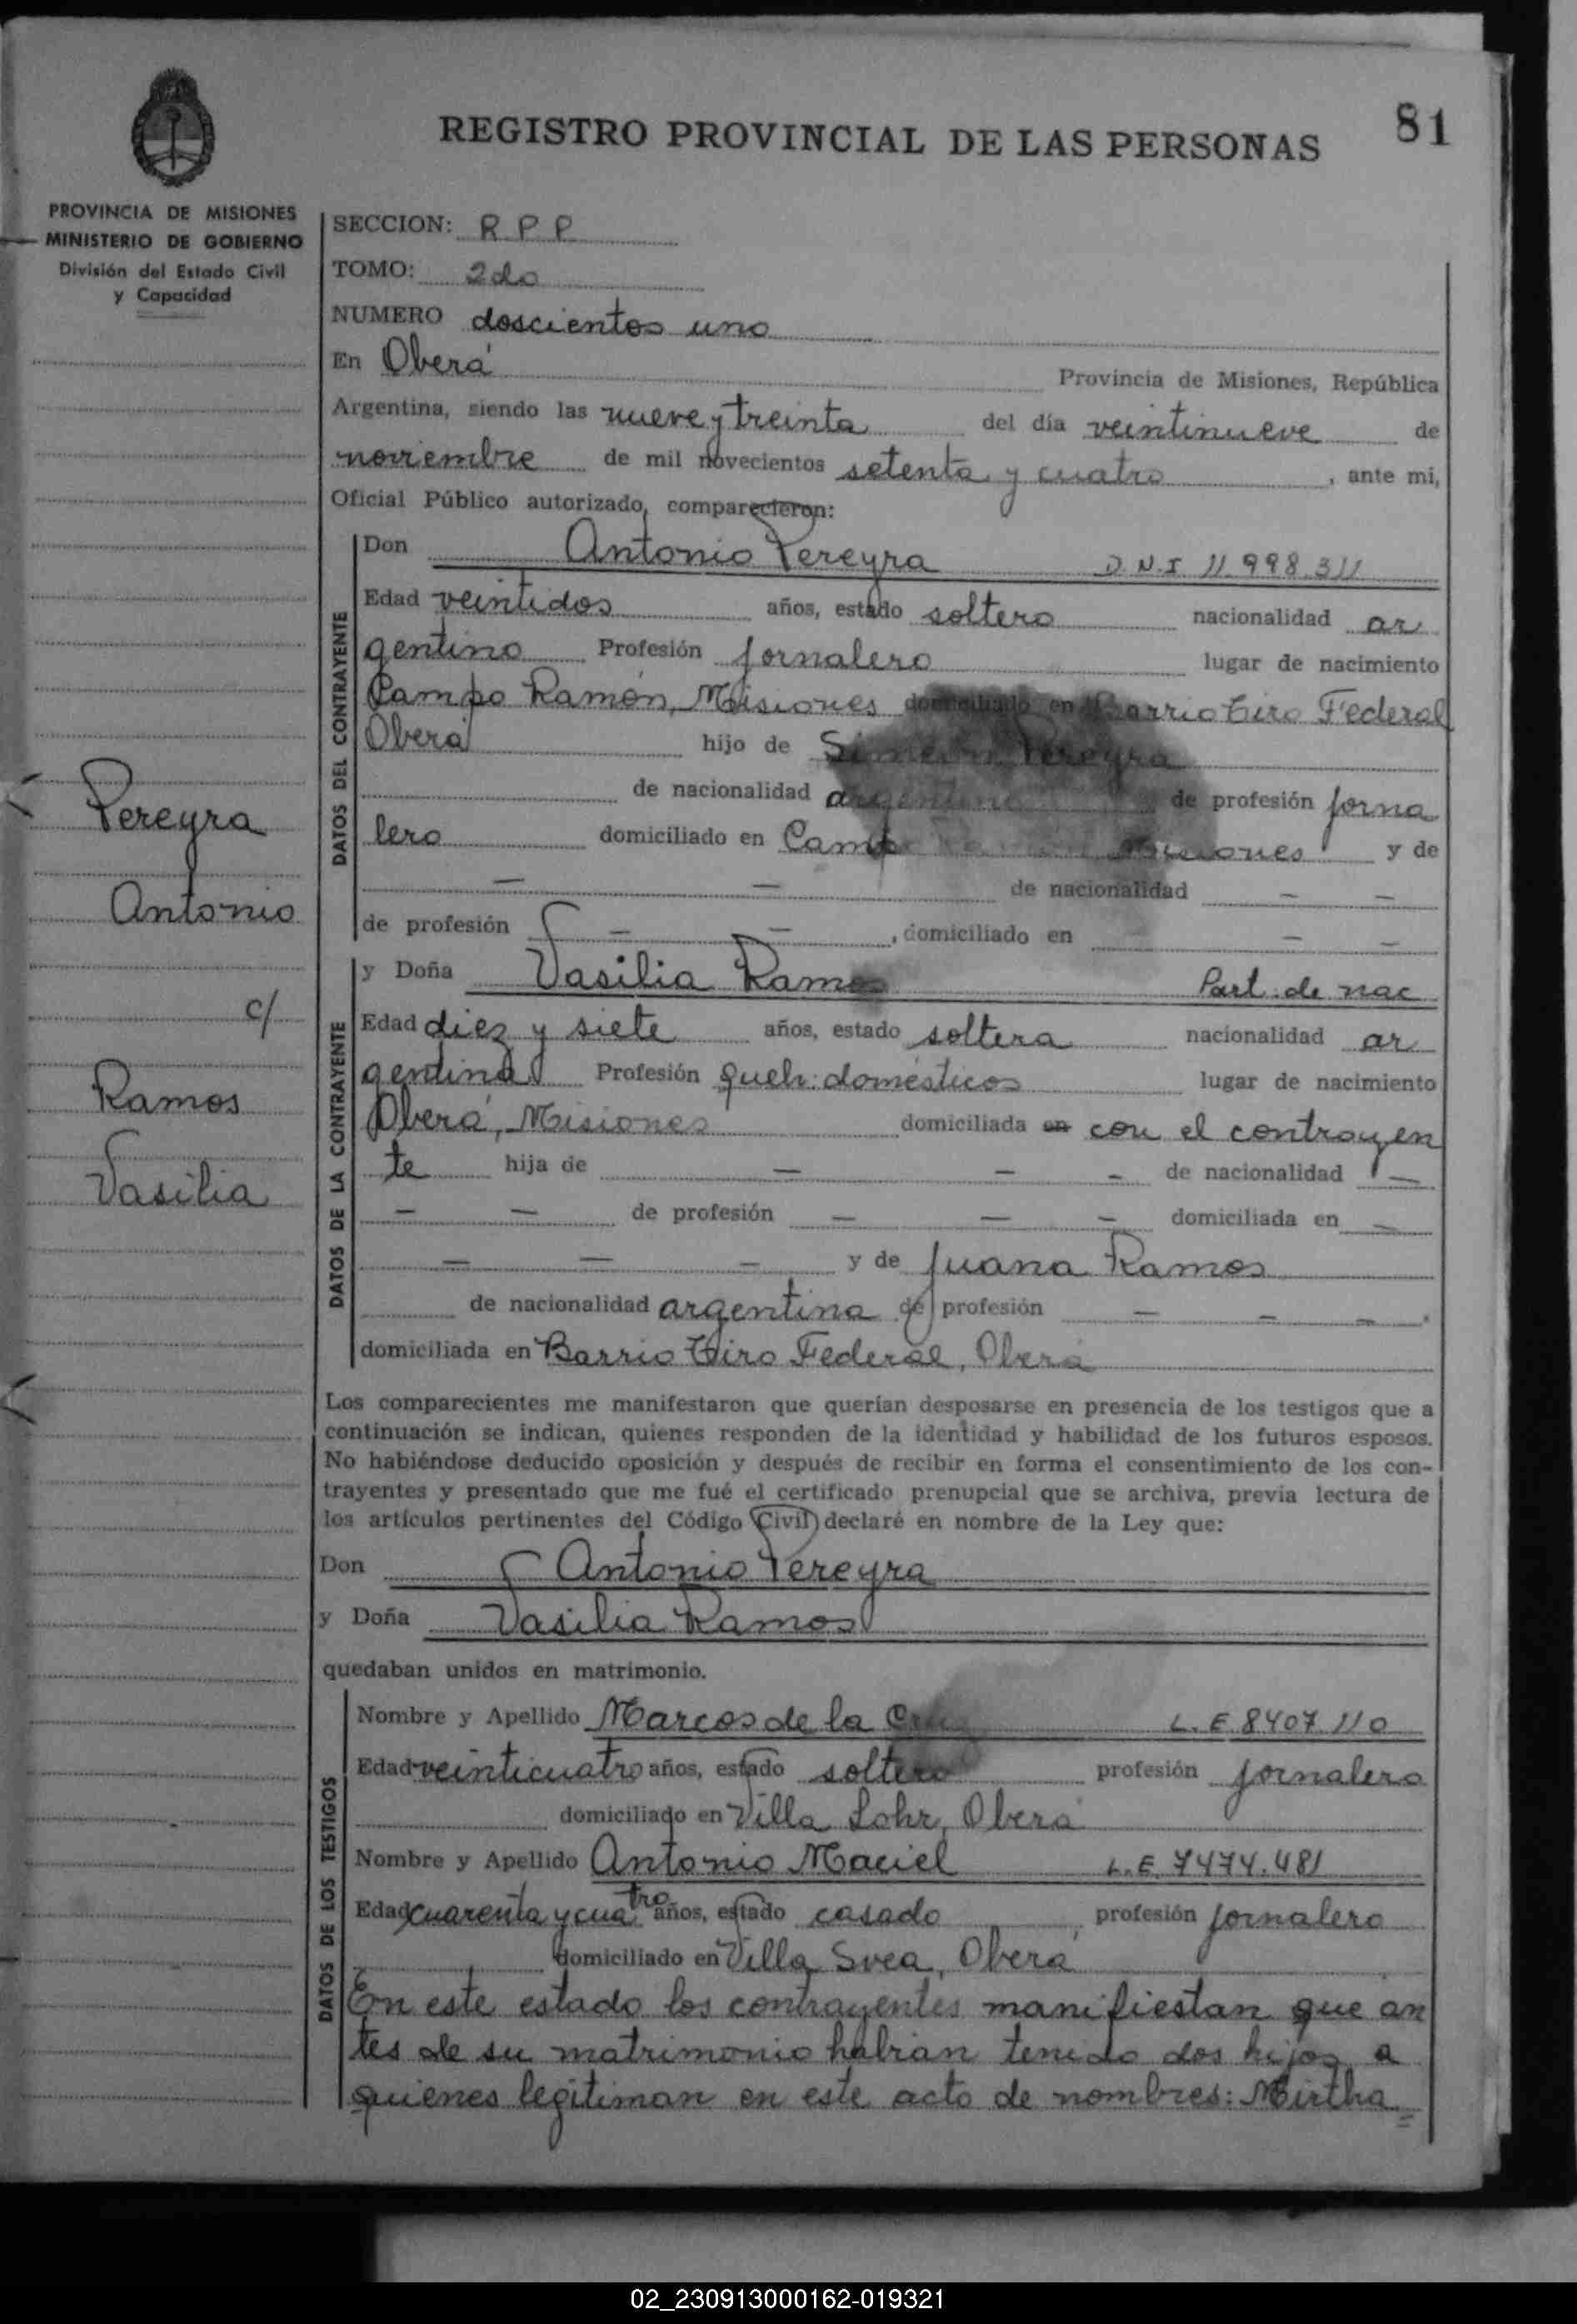 81
REGISTRO PROVINCIAL DE LAS PERSONAS
PROVINCIA DE MISIONES
MINISTERIO DE GOBIERNO
División del Estado Civil
y Capacidad
Pereyra
Antonio
c/
Ramos
Vasilia
SECCION: R P P
TOMO: 2do
NUMERO doscientos uno
En Oberá Provincia de Misiones, República
Argentina, siendo las nueve y treinta del día veintinueve de
noviembre de mil novecientos setenta y cuatro, ante mi,
Oficial Público autorizado, comparecieron:
DATOS DEL CONTRAYENTE
Don Antonio Pereyra D.N.I 11.998.311
Edad veintidos años, estado soltero nacionalidad ar
gentino Profesión jornalero lugar de nacimiento
Campo Ramón, Misiones domiciliado en Barrio Tiro Federal
Oberá hijo de Pereyra
de nacionalidad argentino de profesión jorna
lero domiciliado en Campo Ramón Misiones y de
— — de nacionalidad — —
de profesión — — , domiciliado en — —
DATOS DE LA CONTRAYENTE
y Doña Vasilia Ramos Part. de nac
Edad diez y siete años, estado soltera nacionalidad ar
gentina Profesión queh. domésticos lugar de nacimiento
Oberá, Misiones domiciliada en con el contrayen
te hija de — — — de nacionalidad —
— — de profesión — — — domiciliada en —
— — — y de Juana Ramos
de nacionalidad argentina de profesión — — —
domiciliada en Barrio Tiro Federal, Oberá
Los comparecientes me manifestaron que querían desposarse en presencia de los testigos que a
continuación se indican, quienes responden de la identidad y habilidad de los futuros esposos.
No habiéndose deducido oposición y después de recibir en forma el consentimiento de los con-
trayentes y presentado que me fué el certificado prenupcial que se archiva, previa lectura de
los artículos pertinentes del Código Civil declaré en nombre de la Ley que:
Don Antonio Pereyra
y Doña Vasilia Ramos
quedaban unidos en matrimonio.
DATOS DE LOS TESTIGOS
Nombre y Apellido Marcos de la Cruz L.E 8407110
Edad veinticuatro años, estado soltero profesión jornalero
domiciliado en Villa Lohr, Oberá
Nombre y Apellido Antonio Maciel L.E. 7474.481
Edad cuarenta y cuatro años, estado casado profesión jornalero
domiciliado en Villa Svea, Oberá
En este estado los contrayentes manifiestan que an
tes de su matrimonio habían tenido dos hijos a
quienes legitiman en este acto de nombres: Mirtha=
02_230913000162-019321